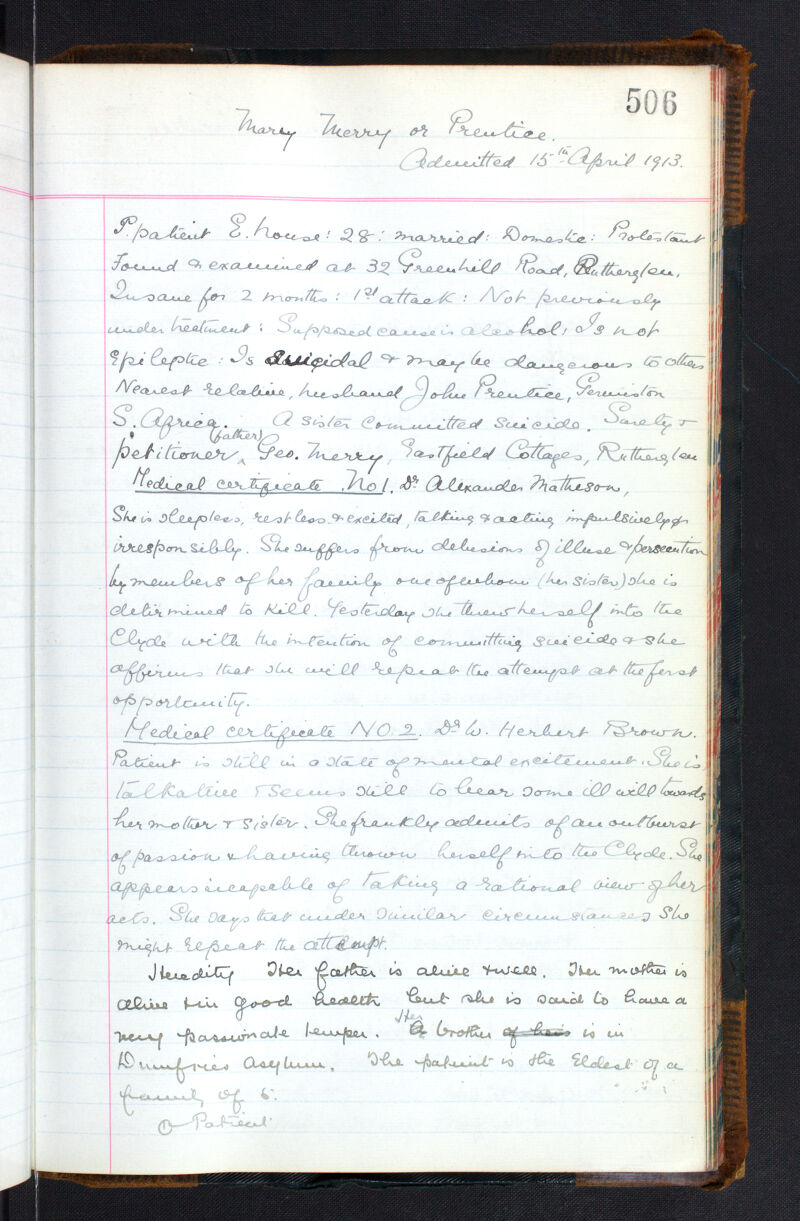 506
Mary Merry or Prentice.
Admitted 15th April 1913.
P. patient E. house: 28: married: Domestic: Protestant
Found & examined at 32 Greenhill Road, Rutherglen.
Insane for 2 months: 1st attack: Not previously
under treatment: Supposed cause is alcohol: Is not
Epileptic: Is suicidal & may be dangerous to others
Nearest relative, husband John Prentice, Germiston
S. Africa. A sister committed suicide. Surety &
petitioner (father) Geo. Merry, Eastfield Cottages, Rutherglen
Medical certificate No 1. Dr Alexander Matheson,
She is sleepless, restless & excited, talking & acting impulsively &
irresponsibly. She suffers from delusions of illuse & persecution
by members of her family one of whom (her sister) she is
determined to kill. Yesterday she threw herself into the
Clyde with the intention of committing suicide & she
affirms that she will repeat the attempt at the first
opportunity.
Medical certificate NO. 2. Dr W. Herbert Brown.
Patient is still in a state of mental excitement. She is
talkative & seems still to bear some ill will towards
her mother & sister. She frankly admits of an outburst
of passion & having thrown herself into the Clyde. She
appears incapable of taking a rational view of her
acts. She says that under similar circumstances she
might repeat the attempt.
Heredity Her father is alive & well. Her mother is
alive & in good health but she is said to have a
very passionate temper. Her brother of hers is in
Dumfries Asylum. The patient is the Eldest of a
family of 5.
Patient